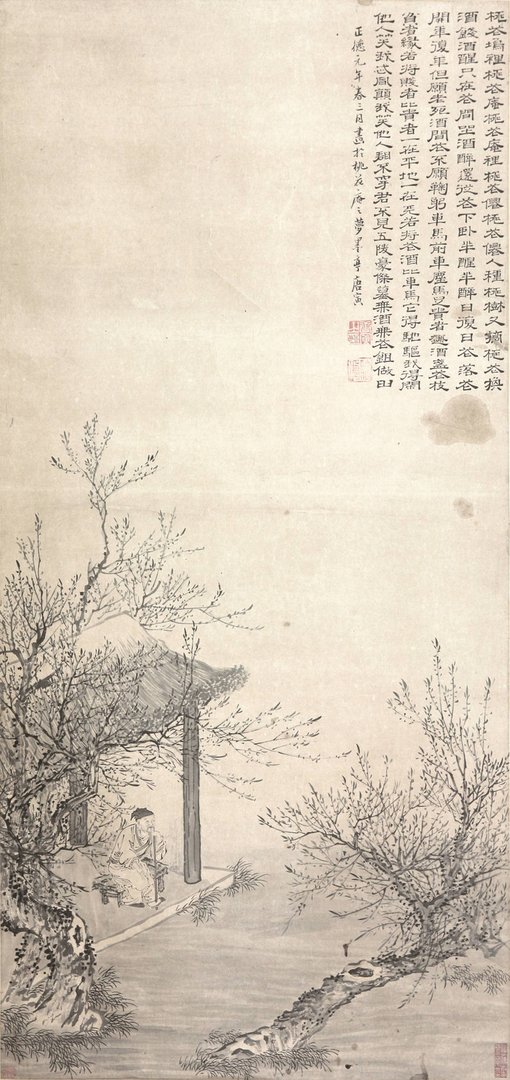 桃花塢裡桃花庵桃花庵裡桃花僊桃花僊人種桃樹又摘桃花換
酒錢酒醒只在花間坐酒醉還從花下卧半醒半醉日復日花落花
開年復年但願老死酒間花不願鞠躬車馬前車塵馬足貴者趣酒盞花枝
貧者緣若將賤者比貴者一在平地一在天若將花酒比車馬它得馳驅我得閒
他人笑我忒風顛我笑他人看不穿君不見五陵豪傑墓無酒無花鋤做田
正德元年春三月畫於桃花庵之夢墨亭唐寅